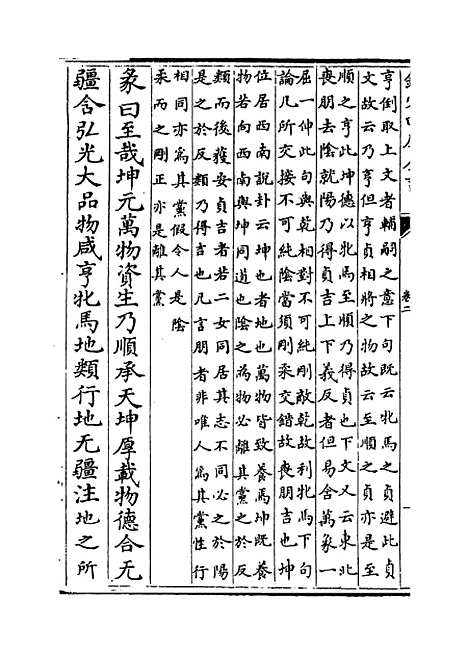 卷二
亨倒取上文者輔嗣之意下句既云牝馬之貞避此貞
文故云乃亨但亨貞相將之物故云至順之貞亦是至
順之亨此坤德以牝馬至順乃得貞也下文又云東北
喪朋去陰就陽乃得貞吉上下義反者但易含萬象一
屈一伸此句與乾相對不可純剛敵乾故利牝馬下句
論凡所交接不可純陰當須剛柔交錯故喪朋吉也坤
位居西南說卦云坤也者地也萬物皆致養焉坤既養
物若向西南與坤同道也陰之為物必離其黨之於反
類而後獲安貞吉者若二女同居其志不同必之於陽
是之於反類乃得吉也凡言朋者非唯人為其黨性行
相同亦為其黨假令人是陰
柔而之剛正亦是離其黨
彖曰至哉坤元萬物資生乃順承天坤厚載物德合无
疆含弘光大品物咸亨牝馬地類行地无疆注地之所